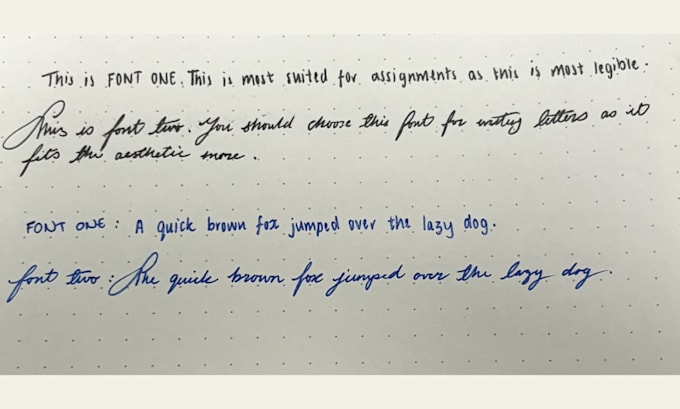 This is FONT ONE. This is most suited for assignments as this is most legible.
This is font two. You should choose this font for writing letters as it
fits the aesthetic more.
FONT ONE: A quick brown fox jumped over the lazy dog.
font two: The quick brown fox jumped over the lazy dog.